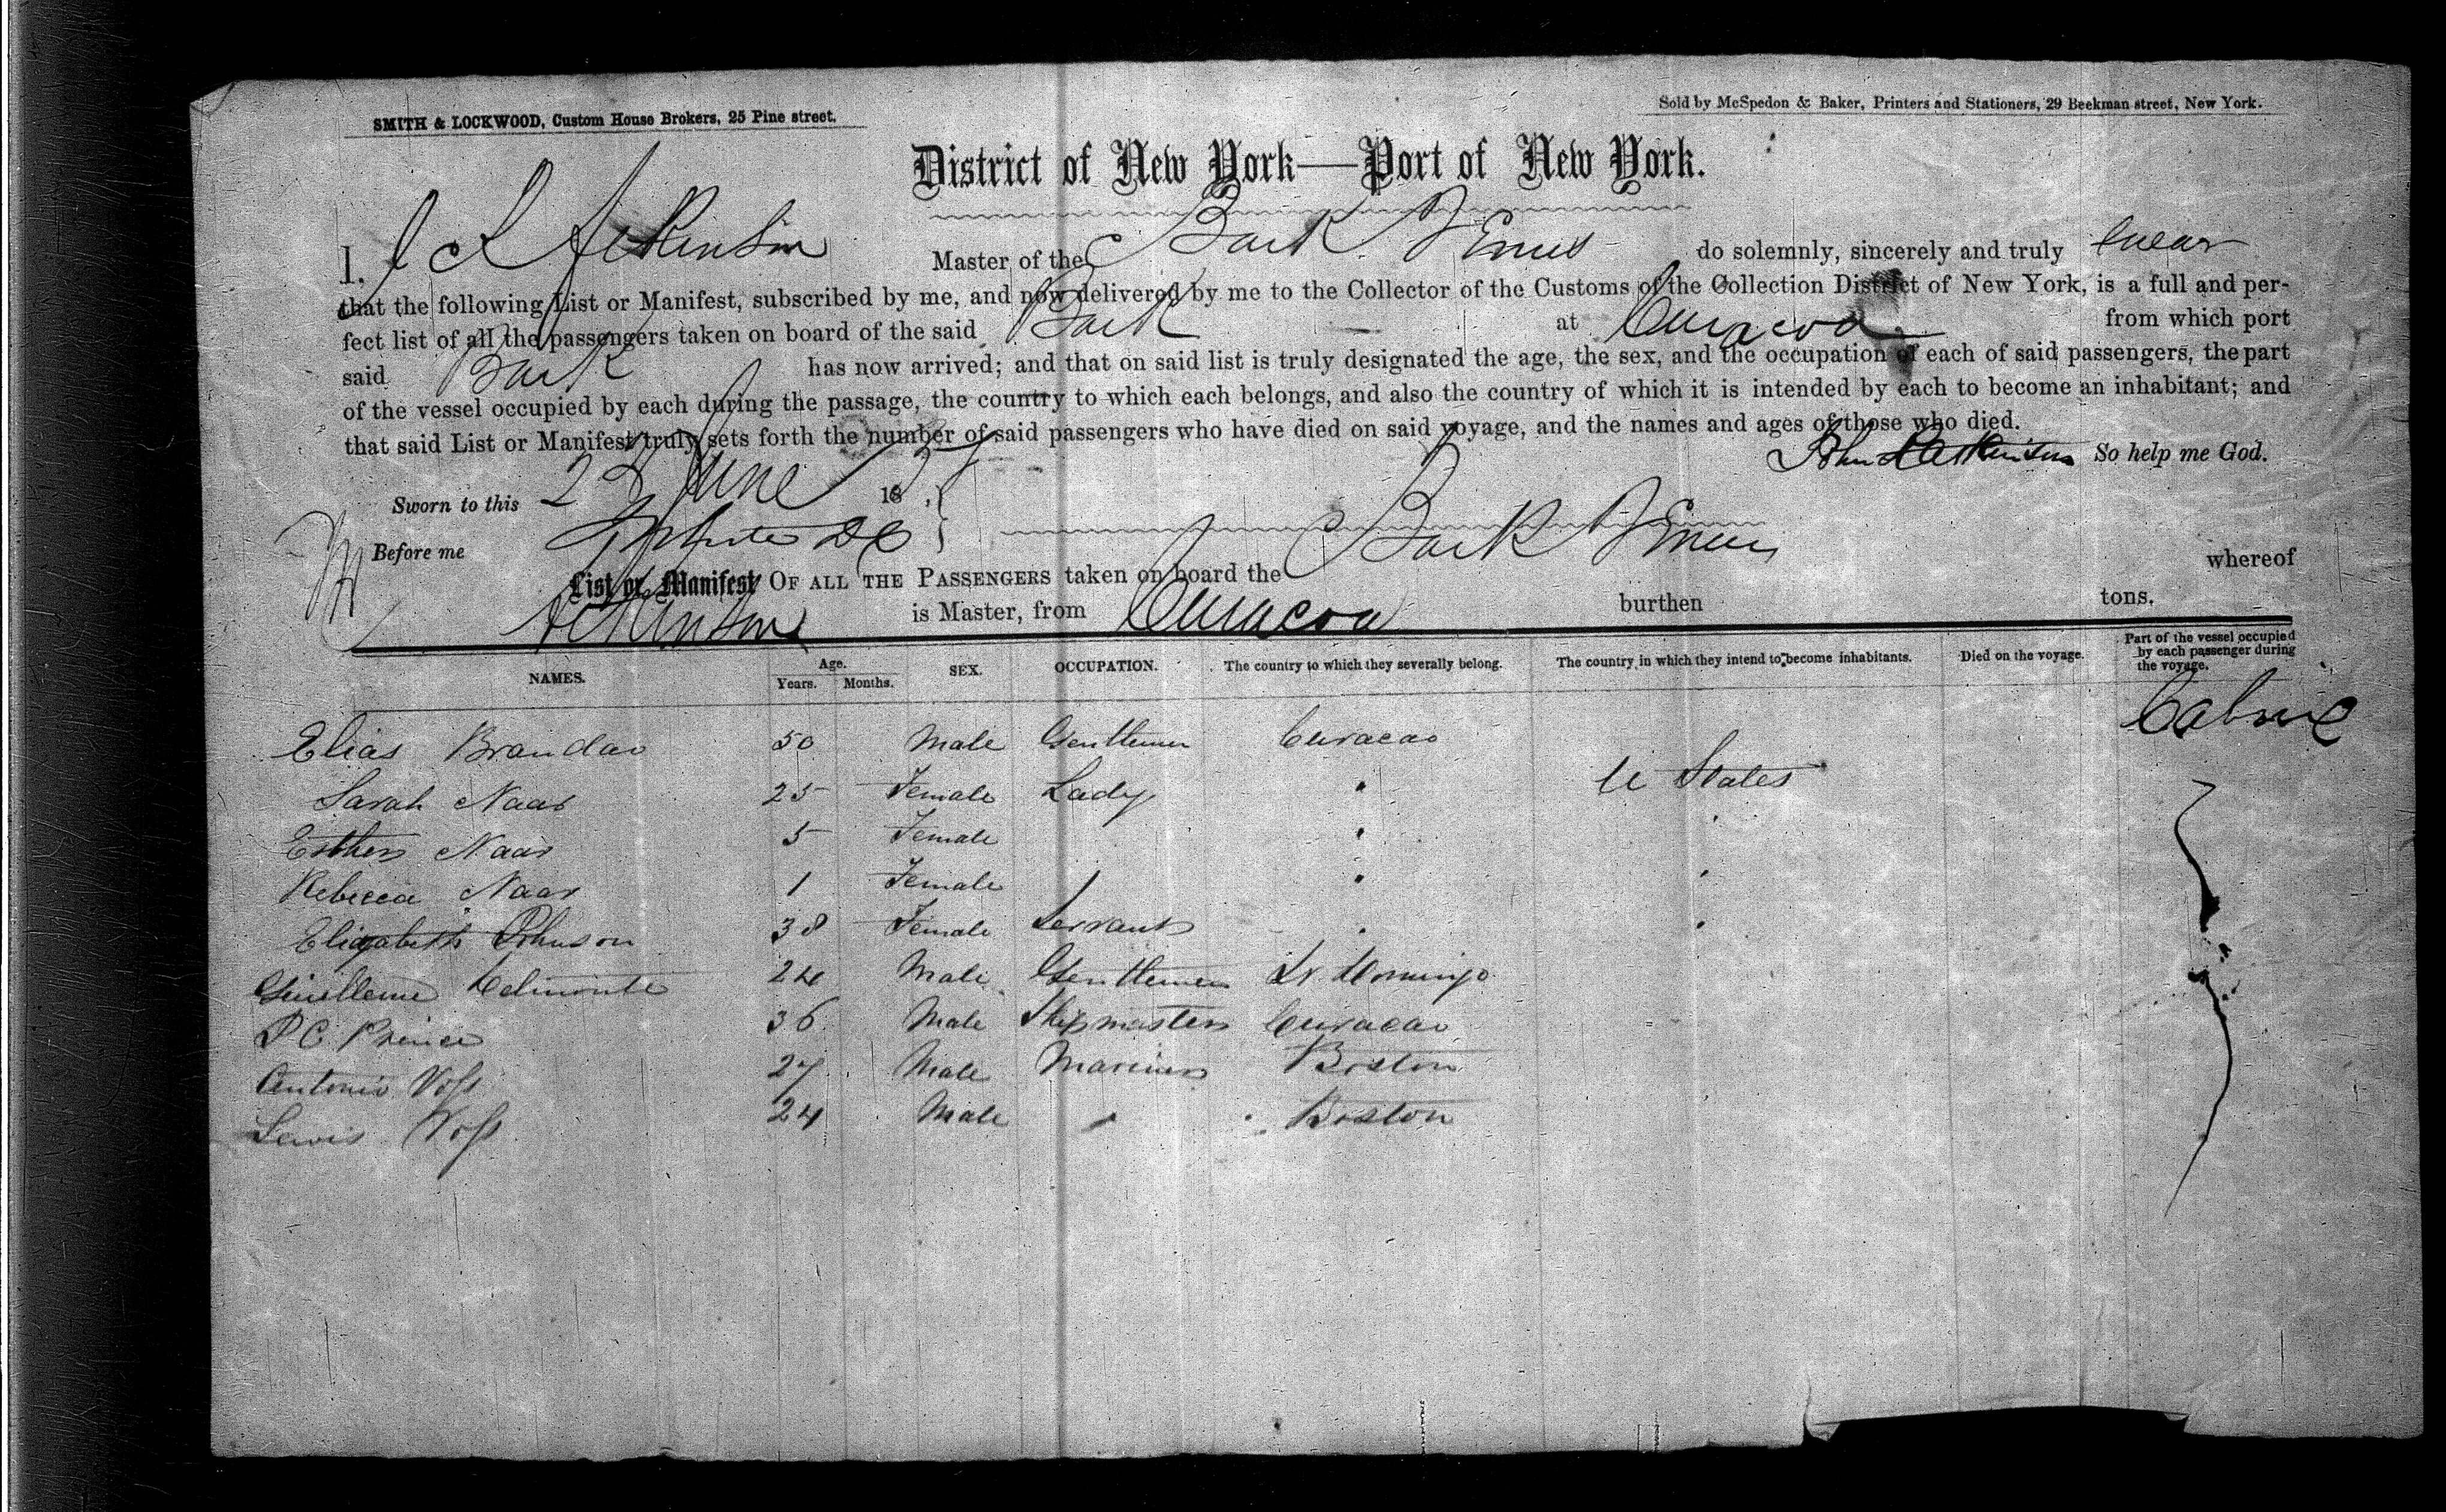 SMITH & LOCKWOOD, Custom House Brokers, 25 Pine street.
Sold by McSpedon & Baker, Printers and Stationers, 29 Beekman street, New York.
District of New York—Port of New York.
I, J L Atkinson Master of the Bark Venus do solemnly, sincerely and truly swear
that the following List or Manifest, subscribed by me, and now delivered by me to the Collector of the Customs of the Collection District of New York, is a full and per-
fect list of all the passengers taken on board of the said Bark at Curacoa from which port
said Bark has now arrived; and that on said list is truly designated the age, the sex, and the occupation of each of said passengers, the part
of the vessel occupied by each during the passage, the country to which each belongs, and also the country of which it is intended by each to become an inhabitant; and
that said List or Manifest truly sets forth the number of said passengers who have died on said voyage, and the names and ages of those who died.
John L Atkinson So help me God.
Sworn to this 23 June 18
Before me
List or Manifest OF ALL THE PASSENGERS taken on board the Bark Venus whereof
Atkinson is Master, from Curacoa burthen tons.
NAMES. Age. Years. Months. SEX. OCCUPATION. The country to which they severally belong. The country in which they intend to become inhabitants. Died on the voyage. Part of the vessel occupied by each passenger during the voyage.
Elias Brandao 50 Male Gentlemen Curacao Cabin
Sarah Naar 25 Female Lady " U States
Esther Naar 5 Female " "
Rebecca Naar 1 Female " "
Elizabeth Johnson 38 Female Servant " "
Guilleme Delmonte 24 Male Gentlemen St. Domingo
P C Prince 36 Male Shipmaster Curacao
Antonio Voss 27 Male Mariner Boston
Lewis Voss 24 Male " Boston